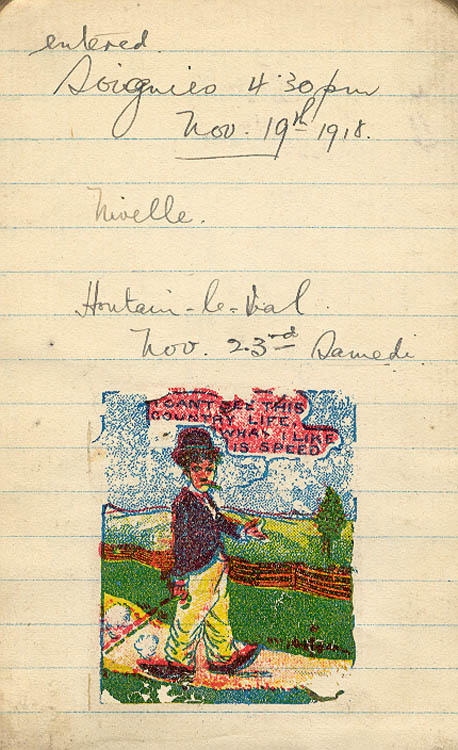 entered.
Soignies 4.30pm
Nov. 19th 1918.
Nivelle.
Houtain-le-Val.
Nov. 23rd Samedi.
I CAN'T SEE THIS
COUNTRY LIFE,
WHAT I LIKE
IS SPEED